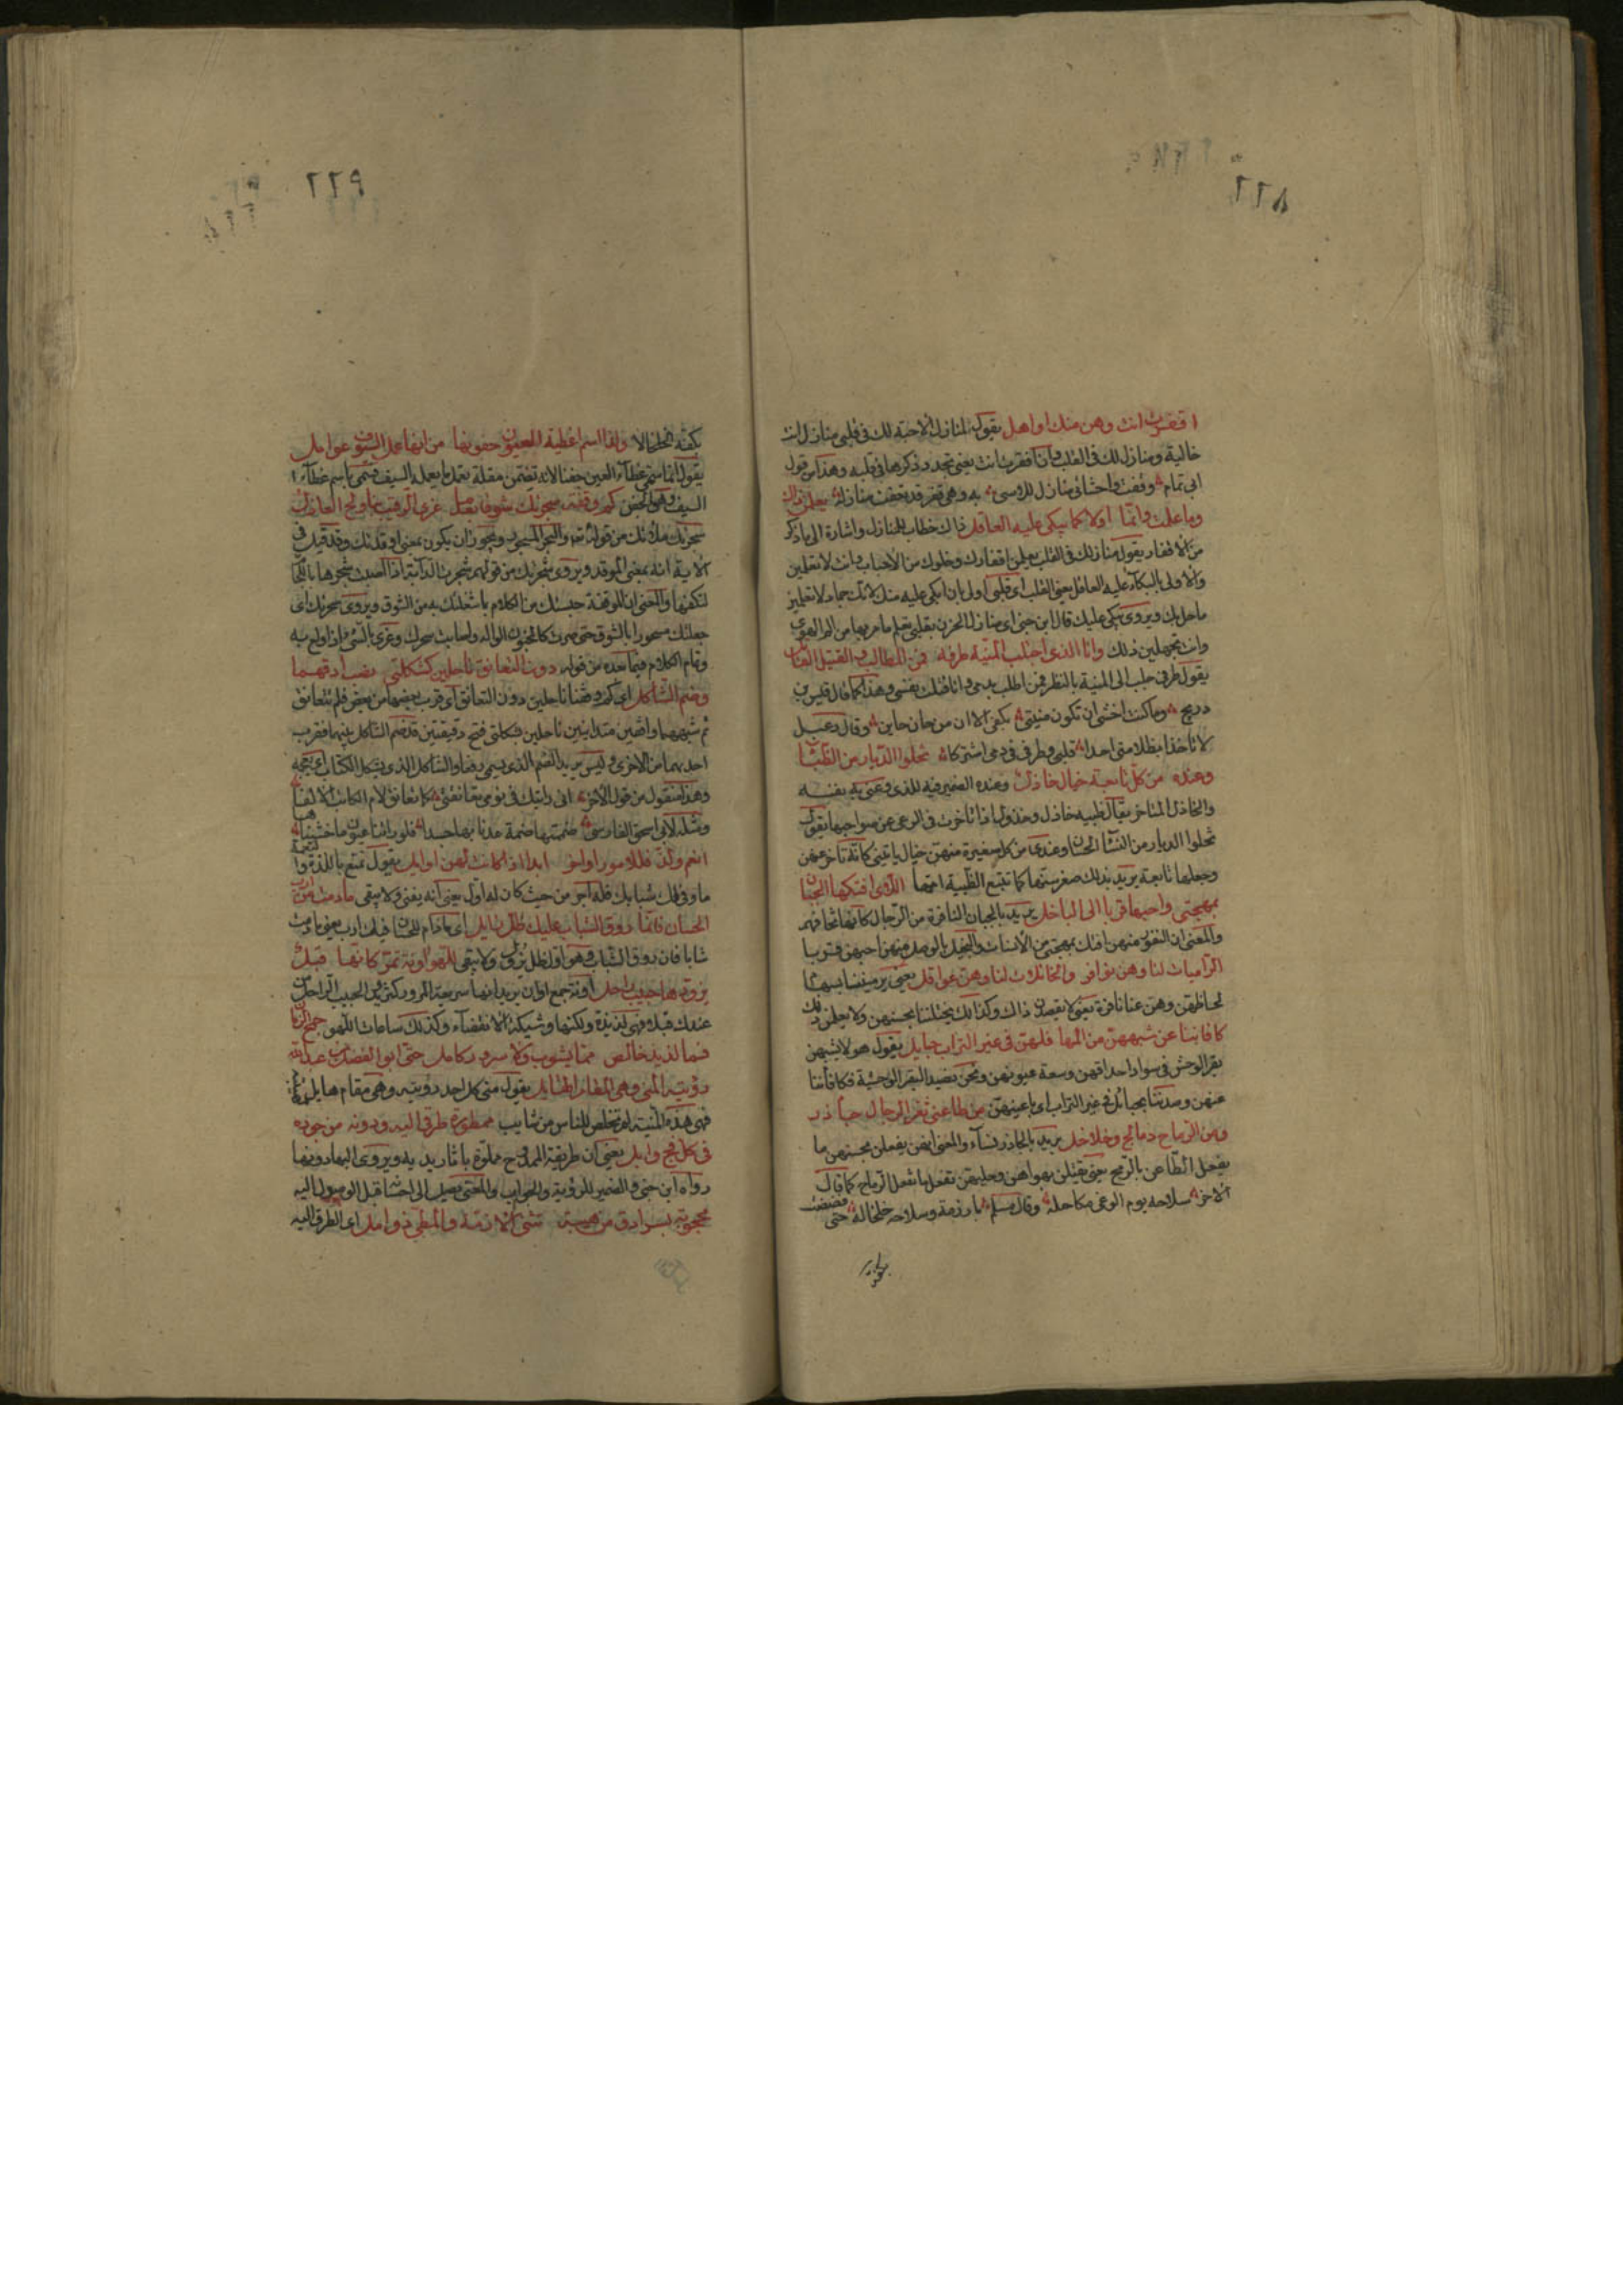 ٢٢٨
اقفرت انت وهن منك اواهل يقول لمنازل الاحبة لك فى قلبى منازل انت
خالية ومنازل لك فى القلب وان اقفرت انت يعنى تجدد ذكرها فى قلبه وهذا من قول
ابى تمام وقفت واحشائى منازل للاسى به وهى قفر قد تعفت منازله يعلمن ذاك
وما علمت وانما اولاكما يبكى عليه العاقل ذاك خطاب للمنازل واشارة الى ما ذكر
من الاقفار يقول منازلك فى القلب يعلمن اقفارك وخلوك من الاحباب وانت لا تعلمين
والاولى بالبكاء عليه العاقل يعنى القلب اى قلبى اولى بان ابكى عليه منك لانك جماد لا تعلمين
ما حل بك ويروى يبكى عليك قال ابن جنى اى منازل الحزن بقلبى تعلم ما مر بها من الم الهوى
وانت تجهلين ذلك وانا الذى اجتلب المنية طرفه فمن المطالب والقتيل القاتل
يقول طرفى جلب الى المنية بالنظر فمن اطلب بدمى وانا قتلت نفسى وهذا كما قال قيس بن
ذريح وما كنت اخشى ان تكون منيتى بكفى الا ان من حان حاين وقال دعبل
لا تاخذا بظلامتى احدا قلبى وطرفى فى دمى اشتركا تخلوا الديار من الظباء
وعنده من كل تابعة خيال خاذل وعنده الضمير فيه للذى وعنى به نفسه
والخاذل المتاخر يقال ظبية خاذل وخذول اذا تاخرت فى الرعى عن صواحبها يقول
تخلوا الديار من النساء الحسان وعندى من كل صغيرة منهن خيال ياتينى كانه تاخر عنهن
وجعلها تابعة يريد بذلك صغر سنها كما تتبع الظبية امها اللاى افتكها الجبان
بمهجتى واحبها قربا الى الباخل يريد بالجبان النافرة من الرجال كانها تخافهم
والمعنى ان النفور منهن افتك بمهجتى من الانسات والبخيل بالوصل منهن احبهن قربا
الراميات لنا وهن نوافر والخاتلات لنا وهن غوافل يعنى يرميننا بسهام
لحاظهن وهن عنا نافرة يعنى لا يقصدن ذاك وكذلك يختلننا بحسنهن ولا يعلمن ذلك
كافاننا عن شبههن من المها فلهن فى غير التراب حبايل يقول هولا يشبهن
بقر الوحش فى سواد احداقهن وسعة عيونهن ونحن نصيد البقر الوحشية فكافاننا
عنهن وصدننا بحبائل فى غير التراب اى باعينهن من طاعنى ثغر الرجال جآذر
ومن الرماح دمالج وخلاخل يريد بالجاذر نساء والمعنى انهن يفعلن بحسنهن ما
يفعل الطاعن بالرمح يعنى يقتلن بهواهن وحليهن تفعل ما تفعل الرماح كما قال
الاخر سلاحه يوم الوغى مكاحله وقال مسلم بارزته وسلاحه خلخاله حتى فضضت
بكفى
٢٢٩
بكفى الخلخالا ولذا اسم اغطية العيون جفونها من انها عمل السيوف عوامل
يقول انما سمى غطاء العين جفنا لانه تضمن مقلة تعمل ما يعمله السيف فسمى باسم غطاء
السيف وهو الجفن كم وقفة سجرتك شوقا بعد ما غرى الرقيب بنا ولج العاذل
سجرتك ملاتك من قوله تعالى والبحر المسجور ويجوز ان يكون بمعنى اوقدتك وقد قيل فى
الاية انه بمعنى الموقد ويروى شجرتك من قولهم شجرت الدابة اذا اصبت شجرها باللجام
لتكفها والمعنى ان الوقفة حبستك من الكلام بما شغلتك به من الشوق ويروى سحرتك اى
جعلتك مسحورا بالشوق حتى صرت كالمجنون الواله واصابت سحرك وغرى بالشى اذا اولع به
وتمام الكلام فيما بعده من قوله دون التعانق ناحلين كشكلتى نصب ادقهما
وضم الشاكل اى كم وقفنا ناحلين دون التعانق اى قرب بعضنا من بعض فلم نتعانق
ثم شبههما واقفين متدانيين ناحلين بشكلتى فتح دقيقتين قد ضم الشاكل بينهما فقرب
احديهما من الاخرى وليس يريد الضم الذى يسمى رفعا والشاكل الذى يشكل الكتاب اى يعجمه
وهذا منقول من قول الاخر انى رايتك فى نومى تعانقنى كما تعانق لام الكاتب الالفا
ومثله لابى اسحق الفارسى ضممتها ضمة عدنا بها جسدا فلو راتنا عيون ما خشيناها
انعم ولذ فللامور اواخر ابدا اذا كانت لهن اوايل يقول تمتع بالنعمة واللذة
ما وفى لك شبابك فله اخر من حيث كان له اول يعنى انه يفنى ولا يبقى ما دمت من ارب
الحسان فانما روق الشباب عليك ظل زايل اى ما دام للحسان فيك ارب يعنى ما دمت
شابا فان روق الشباب وهو اوله ظل يزول ولا يبقى للهو اونة تمر كانها قبل
يزودها حبيب راحل اونة جمع اوان يريد انها سريعة المرور كتزويد الحبيب الراحل من
عندك قبلة فهى لذيذة ولكنها وشيكة الانقضاء وكذلك ساعات اللهو جمح الزمان
فما لذيذ خالص مما يشوب ولا سرور كامل حتى ابو الفضل بن عبدالله
رؤيته المنى وهى المقام الهايل يقول منى كل احد رؤيته وهى مقام هايل
فهى هذه المنية لم تخلص للناس من شايب ممطورة طرقى اليه ودونه من جوده
فى كل فج وابل يعنى ان طريقه الممدوح مملوة باثار يديه ويروى اليها ودونها
رواه ابن جنى والضمير للرؤية والمعنى يصل الى احسانه قبل الوصول اليه
محجوبة بسرادق من هيبة تثنى الازمة والمطى ذوامل اى الطرق اليه